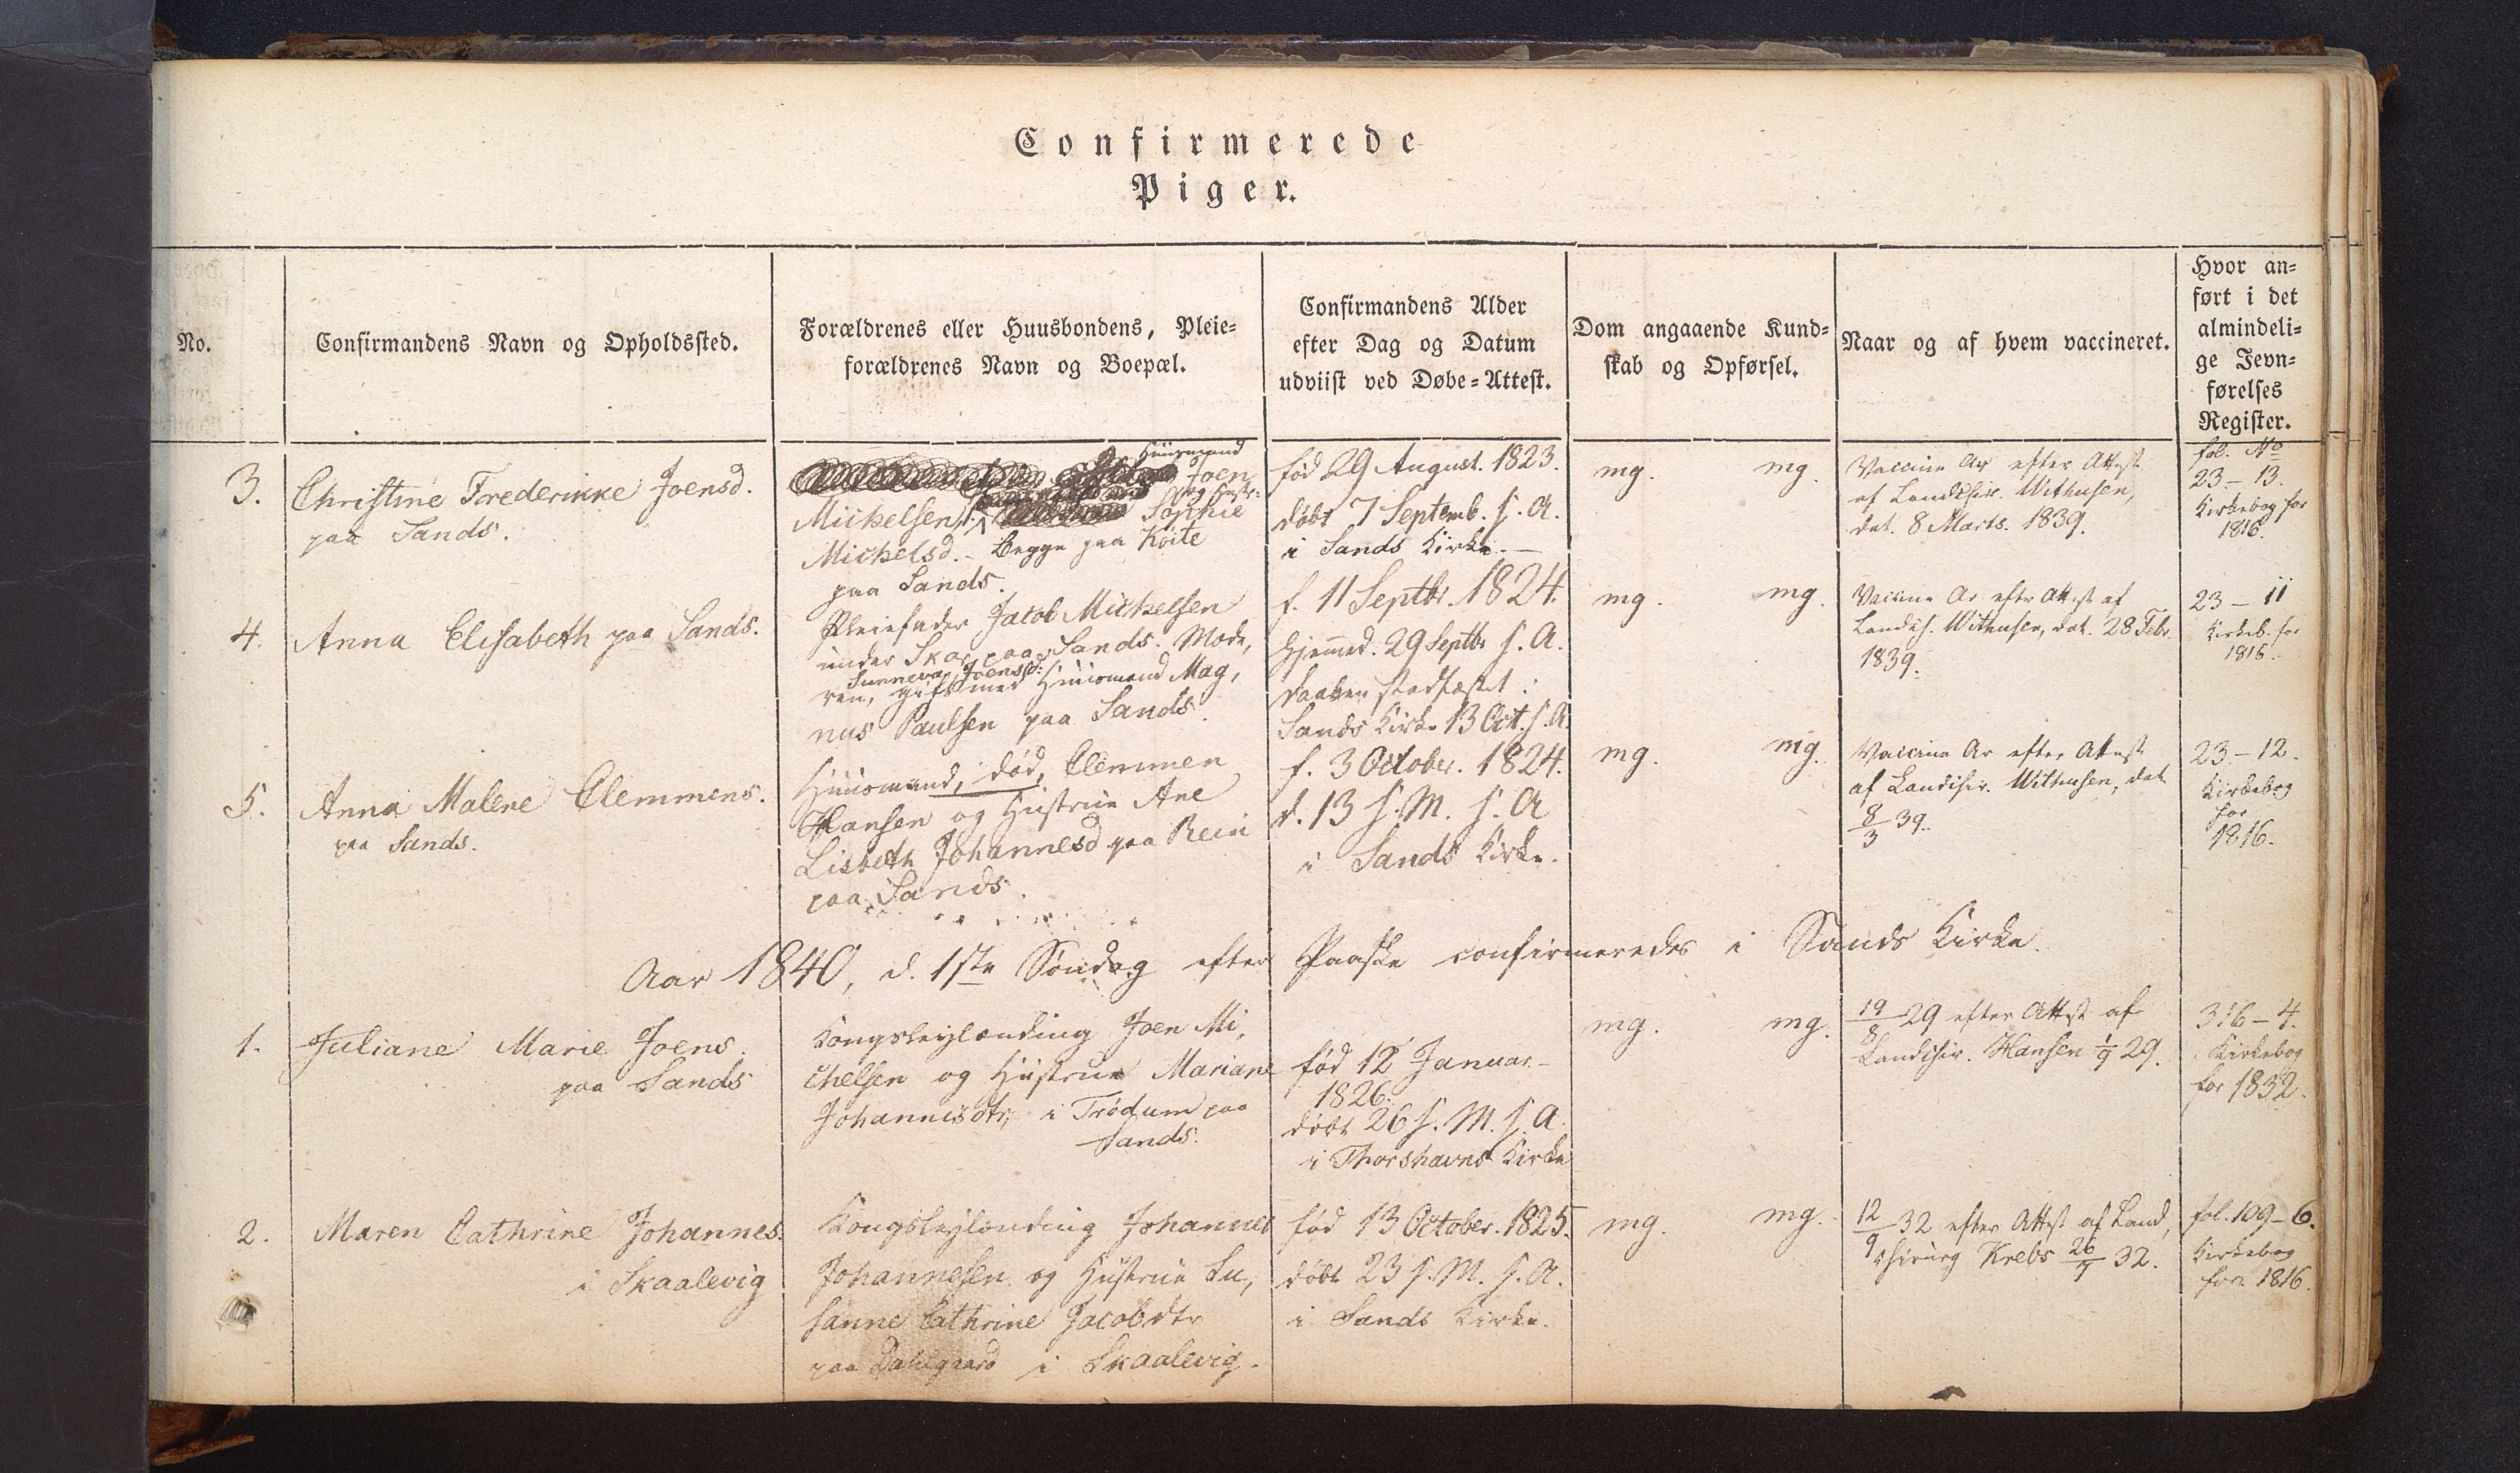 Confirmerede
Piger.
No.
Confirmandens Navn og Opholdssted.
Forældrenes eller Huusbondens, Pleie-
forældrenes Navn og Boepæl.
Confirmandens Alder
efter Dag og Datum
udviist ved Døbe-Attest.
Dom angaaende Kund-
skab og Opførsel.
Naar og af hvem vaccineret.
Hvor an-
ført i det
almindeli-
ge Jevn-
førelses
Register.
3.
Christine Frederikke Joensd.
paa Sands.
Huusmand
Joen
Michelsen, og Hustr: Sophie
Michelsd. - begge paa Köite
paa Sands.
fød 29 August. 1823.
døbt 7 Septemb. s. A.
i Sands Kirke. -
mg. mg.
Vaccine Ar efter Attest
af Landchir. Withusen,
dat. 8 Marts. 1839.
fol. No
23 - 13.
Kirkebog for
1816.
4.
Anna Elisabeth paa Sands.
Pleiefader Jacob Michelsen
under Skor paa Sands. Mode,
Sunneva Joensd:
ren, gift med Huusmand Mag,
nus Paulsen paa Sands.
f. 11 Septbr. 1824.
Hjemmed. 29 Septbr s. A.
Daaben stadfæstet i
Sands Kirke 13 Oct. s. A.
mg. mg.
Vaccine Ar efter Attest af
Landch. Withusen, dat. 28 Febr.
1839.
23 - 11
Kirkeb. for
1816.
5.
Anna Malene Clemmens.
paa Sands.
Huusmand, død, Clemmen
Hansen og Hustrue Ane
Lisbeth Johannesd paa Rein
paa Sands.
f. 3 October. 1824.
d. 13 s. M. s. A
i Sands Kirke.
mg. mg.
Vaccine Ar efter Attest
af Landchir. Withusen, dat
8/3 39.
23 - 12.
Kirkebog
for
1816.
Aar 1840, d. 1ste Søndag efter Paaske confirmeredes i Sands Kirke.
1.
Juliane Marie Joens.
paa Sands
Kongsleilænding Joen Mi,
chelsen og Hustrue Mariane
Johannisdtr, i Trødum paa
Sands.
fød 12 Januar
1826.
døbt 26 s. M. s. A.
i Thorshavns Kirke
mg. mg.
19/8 29 efter Attest af
Landchir. Hansen 1/9 29.
316 - 4.
Kirkebog
for 1832.
2.
Maren Cathrine Johannes.
i Skaalevig
Kongsleilænding Johannes
Johannesen og Hustrue Su,
sanne Cathrine Jacobdtr
paa Dahlgaard i Skaalevig.
fød 13 October. 1825.
døbt 23 s. M. s. A.
i Sands Kirke.
mg. mg.
12/9 32 efter Attest af Land,
chirurg Krebs 26/9 32.
fol. 109 - 6.
Kirkebog
for 1816.